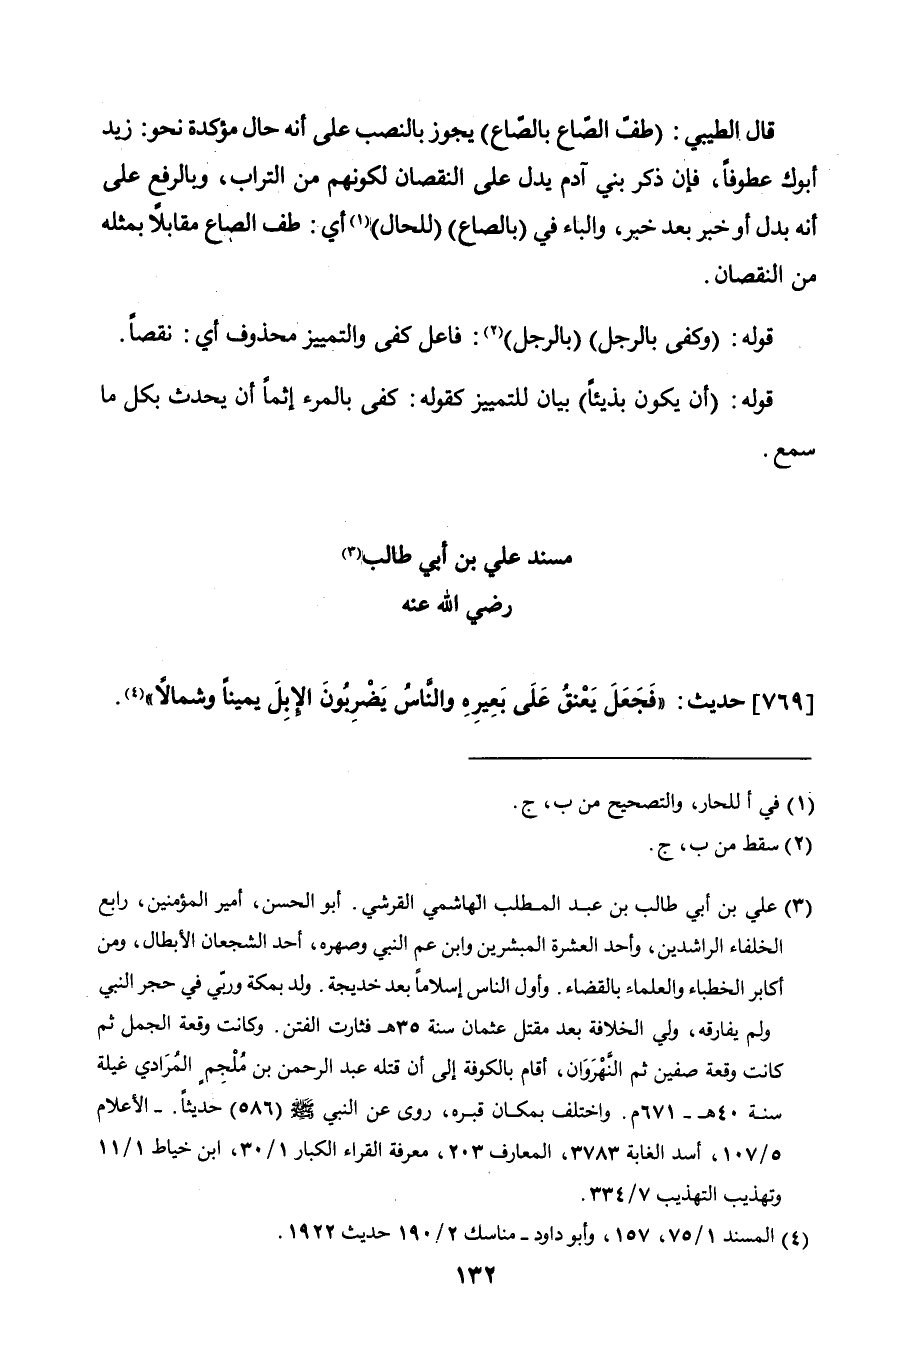 قال الطيبي : (طفّ الصّاع بالصّاع) يجوز بالنصب على أنه حال مؤكدة نحو: زيد
أبوك عطوفاً، فإن ذكر بني آدم يدل على النقصان لكونهم من التراب، وبالرفع على
أنه بدل أو خبر بعد خبر، والباء في (بالصاع) (للحال)(١) أي : طف الصاع مقابلاً بمثله
من النقصان .
قوله : (وكفى بالرجل) (بالرجل)(٢) : فاعل كفى والتمييز محذوف أي : نقصاً .
قوله : (أن يكون بذيئاً) بيان للتمييز كقوله : كفى بالمرء إثماً أن يحدث بكل ما
سمع .
مسند علي بن أبي طالب(٣)
رضي الله عنه
[٧٦٩] حديث : «فَجَعَلَ يَعْنقُ عَلَى بَعِيرِهِ والنَّاسُ يَضْرِبُونَ الإِبِلَ يميناً وشمالاً»(٤) .
(١) في أ للحار، والتصحيح من ب، ج .
(٢) سقط من ب، ج .
(٣) علي بن أبي طالب بن عبد المطلب الهاشمي القرشي . أبو الحسن، أمير المؤمنين، رابع
الخلفاء الراشدين، وأحد العشرة المبشرين وابن عم النبي وصهره، أحد الشجعان الأبطال، ومن
أكابر الخطباء والعلماء بالقضاء . وأول الناس إسلاماً بعد خديجة . ولد بمكة وربّي في حجر النبي
ولم يفارقه، ولي الخلافة بعد مقتل عثمان سنة ٣٥هـ فثارت الفتن . وكانت وقعة الجمل ثم
كانت وقعة صفين ثم النَّهْرَوَان، أقام بالكوفة إلى أن قتله عبد الرحمن بن مُلْجِمٍ المُرَادي غيلة
سنة ٤٠هـ ـ ٦٧١م . واختلف بمكان قبره، روى عن النبي ﷺ (٥٨٦) حديثاً . ـ الأعلام
١٠٧/٥، أسد الغابة ٣٧٨٣، المعارف ٢٠٣، معرفة القراء الكبار ٣٠/١، ابن خياط ١١/١
وتهذيب التهذيب ٣٣٤/٧ .
(٤) المسند ٧٥/١، ١٥٧، وأبو داود ـ مناسك ١٩٠/٢ حديث ١٩٢٢ .
١٣٢